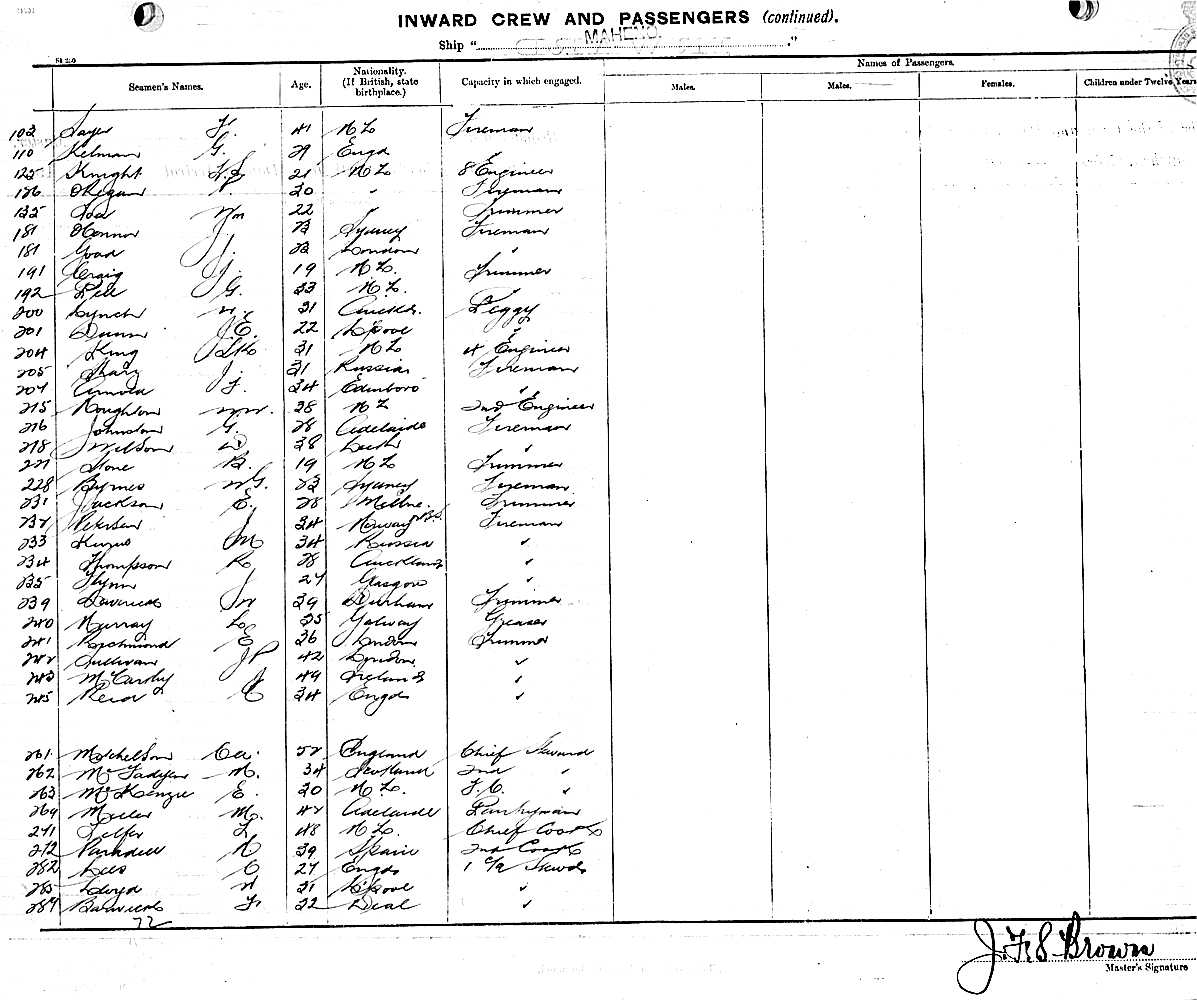 INWARD CREW AND PASSENGERS (continued).
Ship " MAHENO. "
Seamen's Names. Age. Nationality. (If British, state birthplace.) Capacity in which engaged. Names of Passengers.
Males. Males. Females. Children under Twelve Years
102 Sayer F. 41 N Z Fireman
110 Kelman G. 29 Engd
125 Knight 21 N Z 8 Engineer
126 O'Regan 20 " Fireman
135 Wm 22 " Trimmer
181 O'Connor J. 23 Sydney Fireman
181 Goad J. 22 London "
191 Craig J. 19 N Z. Trimmer
192 G. 23 N Z.
200 Lynch 21 Auckd. Peggy
201 Dunn J.E. 22 L'pool "
204 King 31 N Z 4 Engineer
205 J. 31 Russia Fireman
207 Arnold F. 34 Edinboro "
215 Houghton Wm. 28 N Z 2nd Engineer
216 Johnston G. 28 Adelaide Fireman
218 Wilson D 38 Leith "
221 Stone B. 19 N Z Trimmer
228 Byrnes W G. 23 Sydney Fireman
231 Jackson E. 28 Melbne. Trimmer
232 Petersen J 34 Norway Fireman
233 M 34 Russia "
234 Thompson R 28 Auckland "
235 Flynn J 27 Glasgow "
239 39 Durham Trimmer
240 Murray L 25 Galway Greaser
241 Richmond E 36 London Trimmer
242 Sullivan J P 42 London "
243 McCarthy J 49 Ireland "
245 Reid C 34 Engd "
261 Michelson Ca. 52 England Chief Steward
262 McFadyen M. 34 Scotland 2nd "
263 McKenzie E. 20 N Z. F.C. "
269 M. 42 Adelaide Pantryman
271 Telfer 48 N Z. Chief Cook
272 39 Spain 2nd Cook
282 Lees C 27 Engd 1 Stewd
285 Lloyd 21 L'pool "
287 Barwick F 22 Deal "
72
J. F. S. Brown
Master's Signature